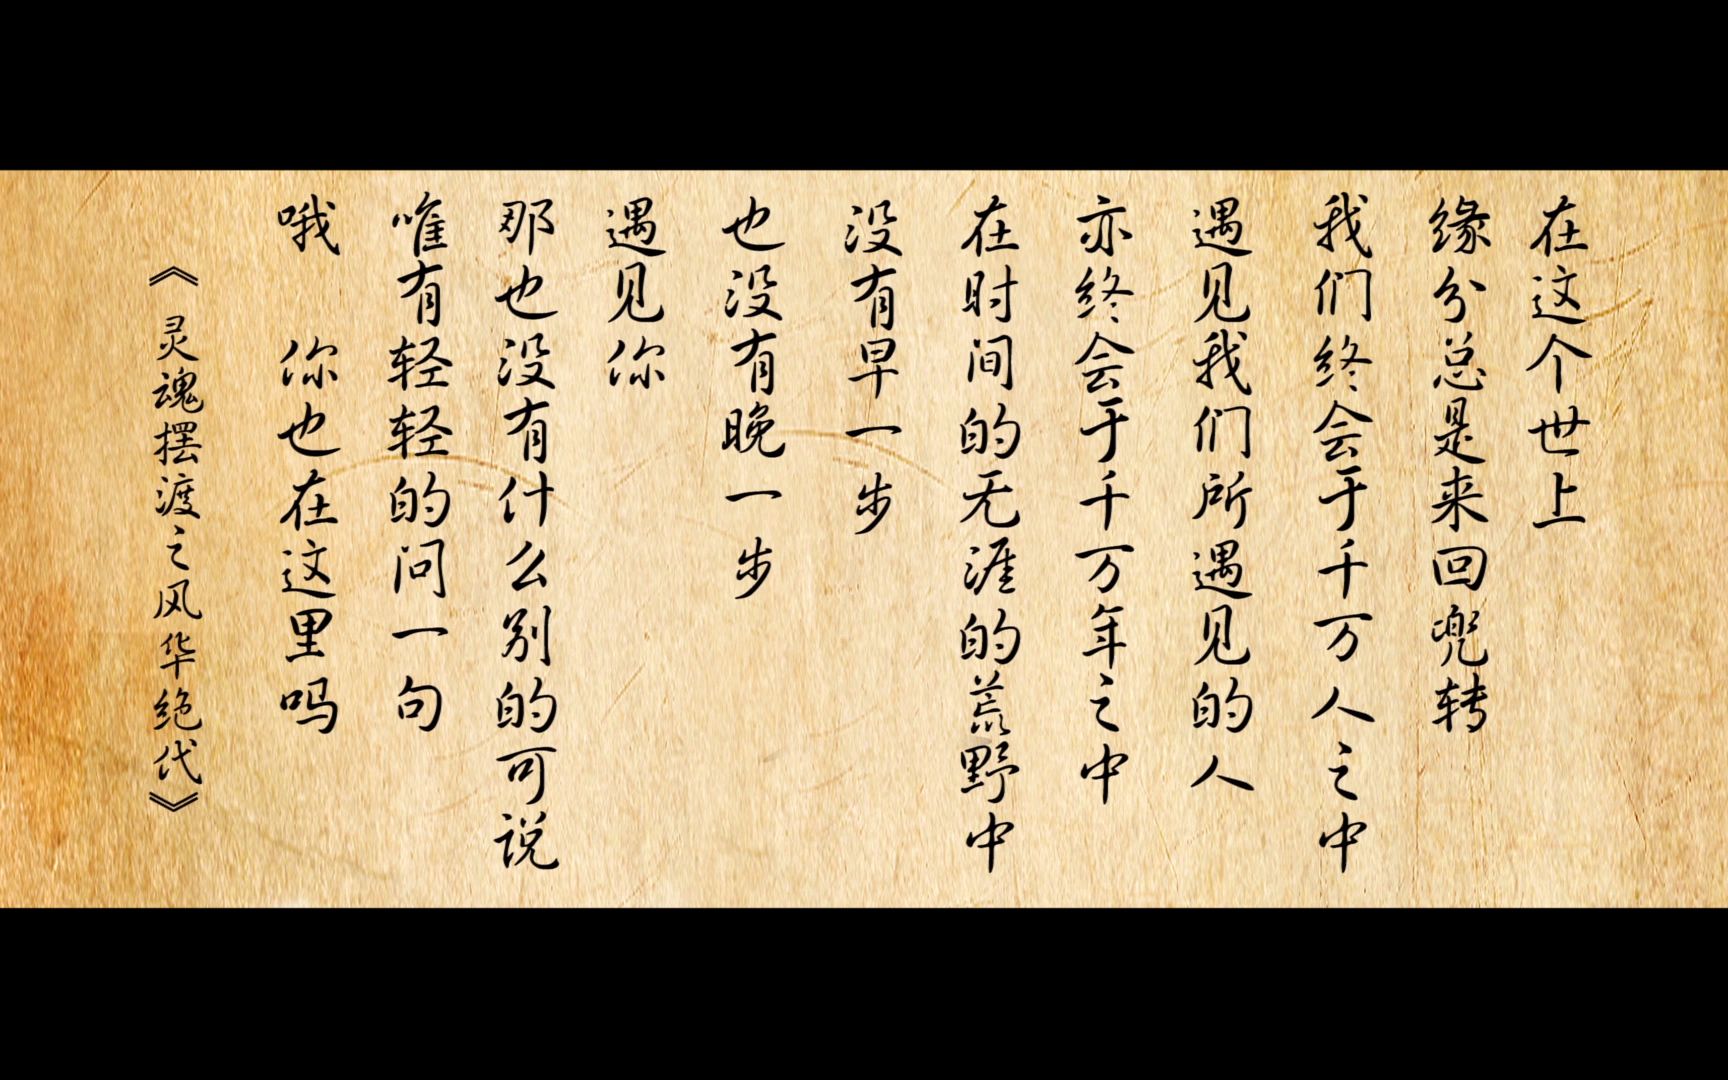 在这个世上
缘分总是来回兜转
我们终会于千万人之中
遇见我们所遇见的人
亦终会于千万年之中
在时间的无涯的荒野中
没有早一步
也没有晚一步
遇见你
那也没有什么别的可说
唯有轻轻的问一句
哦 你也在这里吗
《灵魂摆渡之风华绝代》